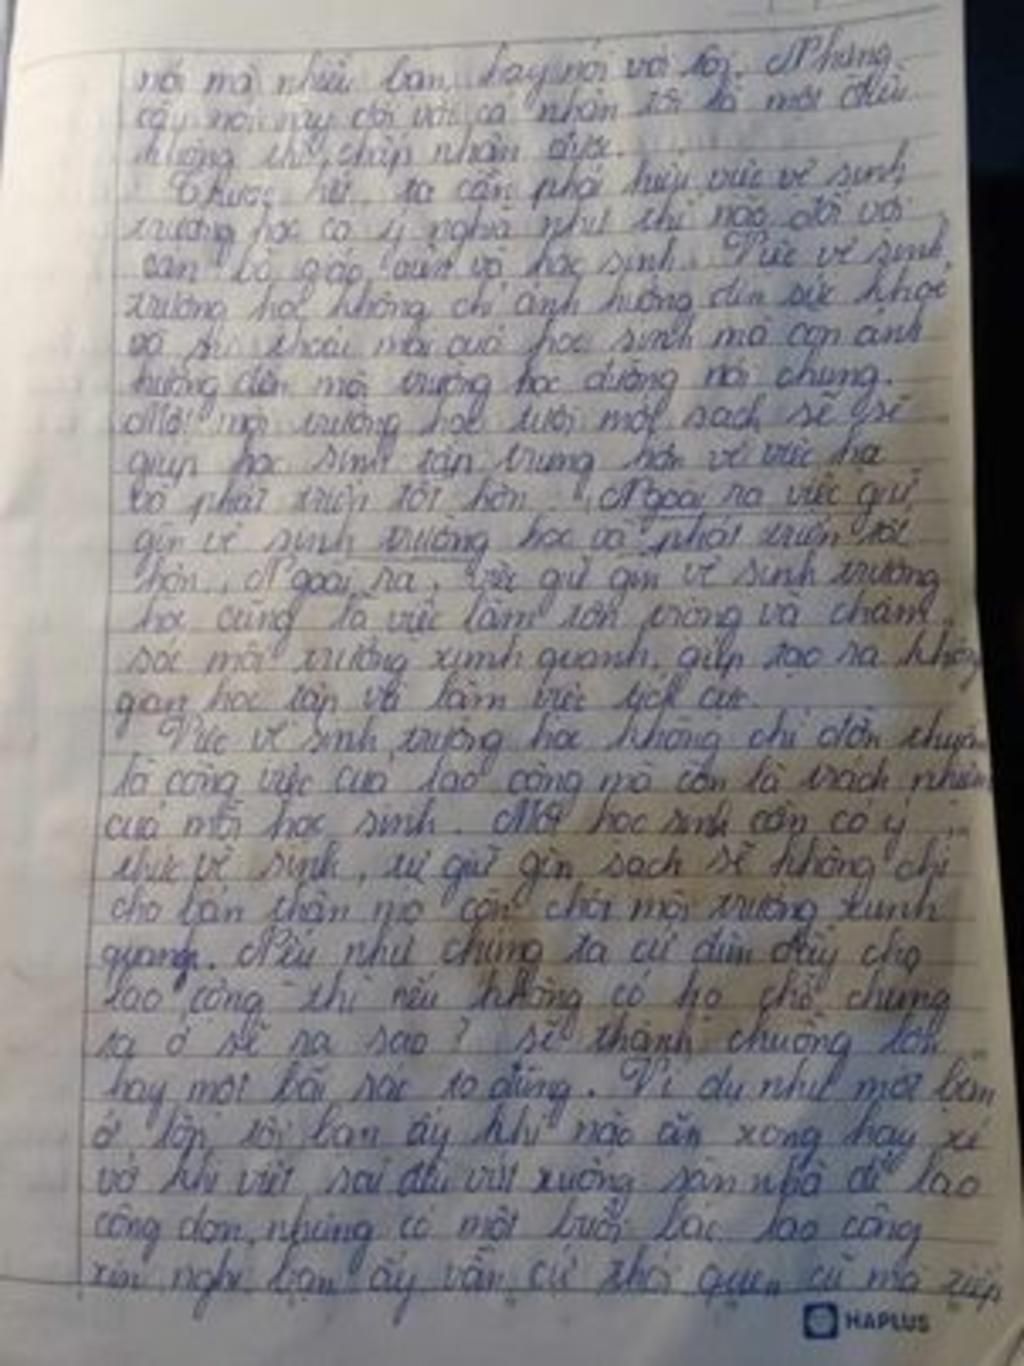 nói mà nhiều bạn hay nói với tôi. Những
câu nói này đối với cá nhân tôi là một điều
không thể chấp nhận được.
Trước hết, ta cần phải hiểu việc vệ sinh
trường học có ý nghĩa như thế nào đối với
cán bộ giáo viên và học sinh. Việc vệ sinh
trường học không chỉ ảnh hưởng đến sức khoẻ
và sự thoải mái của học sinh mà còn ảnh
hưởng đến môi trường học đường nói chung.
Một môi trường học tươi mới sạch sẽ sẽ
giúp học sinh tập trung hơn về việc học
và phát triển tốt hơn. Ngoài ra việc giữ
gìn vệ sinh trường học và phát triển tốt
hơn. Ngoài ra, việc giữ gìn vệ sinh trường
học cũng là việc làm tôn trọng và chăm
sóc môi trường xunh quanh, giúp tạo ra không
gian học tập và làm việc tích cực.
Việc vệ sinh trường học không chỉ đơn thuần
là công việc của lao công mà còn là trách nhiệm
của mỗi học sinh. Mỗi học sinh cần có ý
thức vệ sinh, tự giữ gìn sạch sẽ không chỉ
cho bản thân mà còn cho môi trường xunh
quang. Nếu như chúng ta cứ đùn đẩy cho
lao công thì nếu không có họ chỗ chúng
ta ở sẽ ra sao? sẽ thành chuồng lợn
hay một bãi rác to đùng. Ví dụ như một bạn
ở lớp tôi bạn ấy khi nào ăn xong hay xé
vở khi viết sai đều vứt xuống sàn nhà để lao
công dọn, nhưng có một buổi bác lao công
xin nghỉ bạn ấy vẫn cứ thói quen cũ mà tiếp
HAPLUS